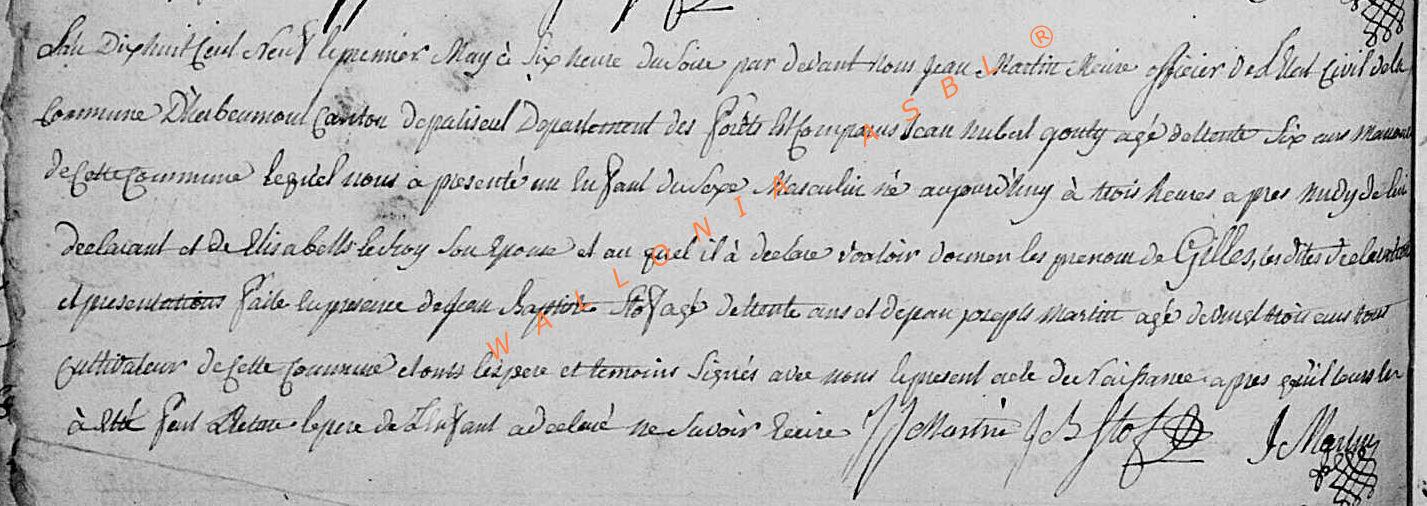 L'an Dixhuit Cent Neuf le premier May à Six heure du Soir par devant Nous Jean Martin Meire officier de d'Etat Civil de la
Commune D'herbeumont Canton de paliseul Departement des forêts Est Comparus Jean hubert gouty agé de trente Six ans Manouvr
de Cette Commune lequel nous à presenté un Enfant du Sexe Masculin né aujourd'huy à trois heures apres midy de lui
declarant et de Elisabeth le Roy Son Epouse et au quel il à declaré vouloir donner les prenom de Gilles, les dites declaration
et presentations faite en presence de jean Baptiste Stof agé de trente ans et de jean joseph Martin agé de vingt trois ans tous
Cultivateur de Cette Commune et onts les pere et temoins Signés avec nous le present acte de Naissance apres qu'il leurs en
à été fait Lecture le pere de L'enfant a declaré ne Savoir Ecrire JJ Martin J B Stof J Martin
WALLONIA ASBL ®